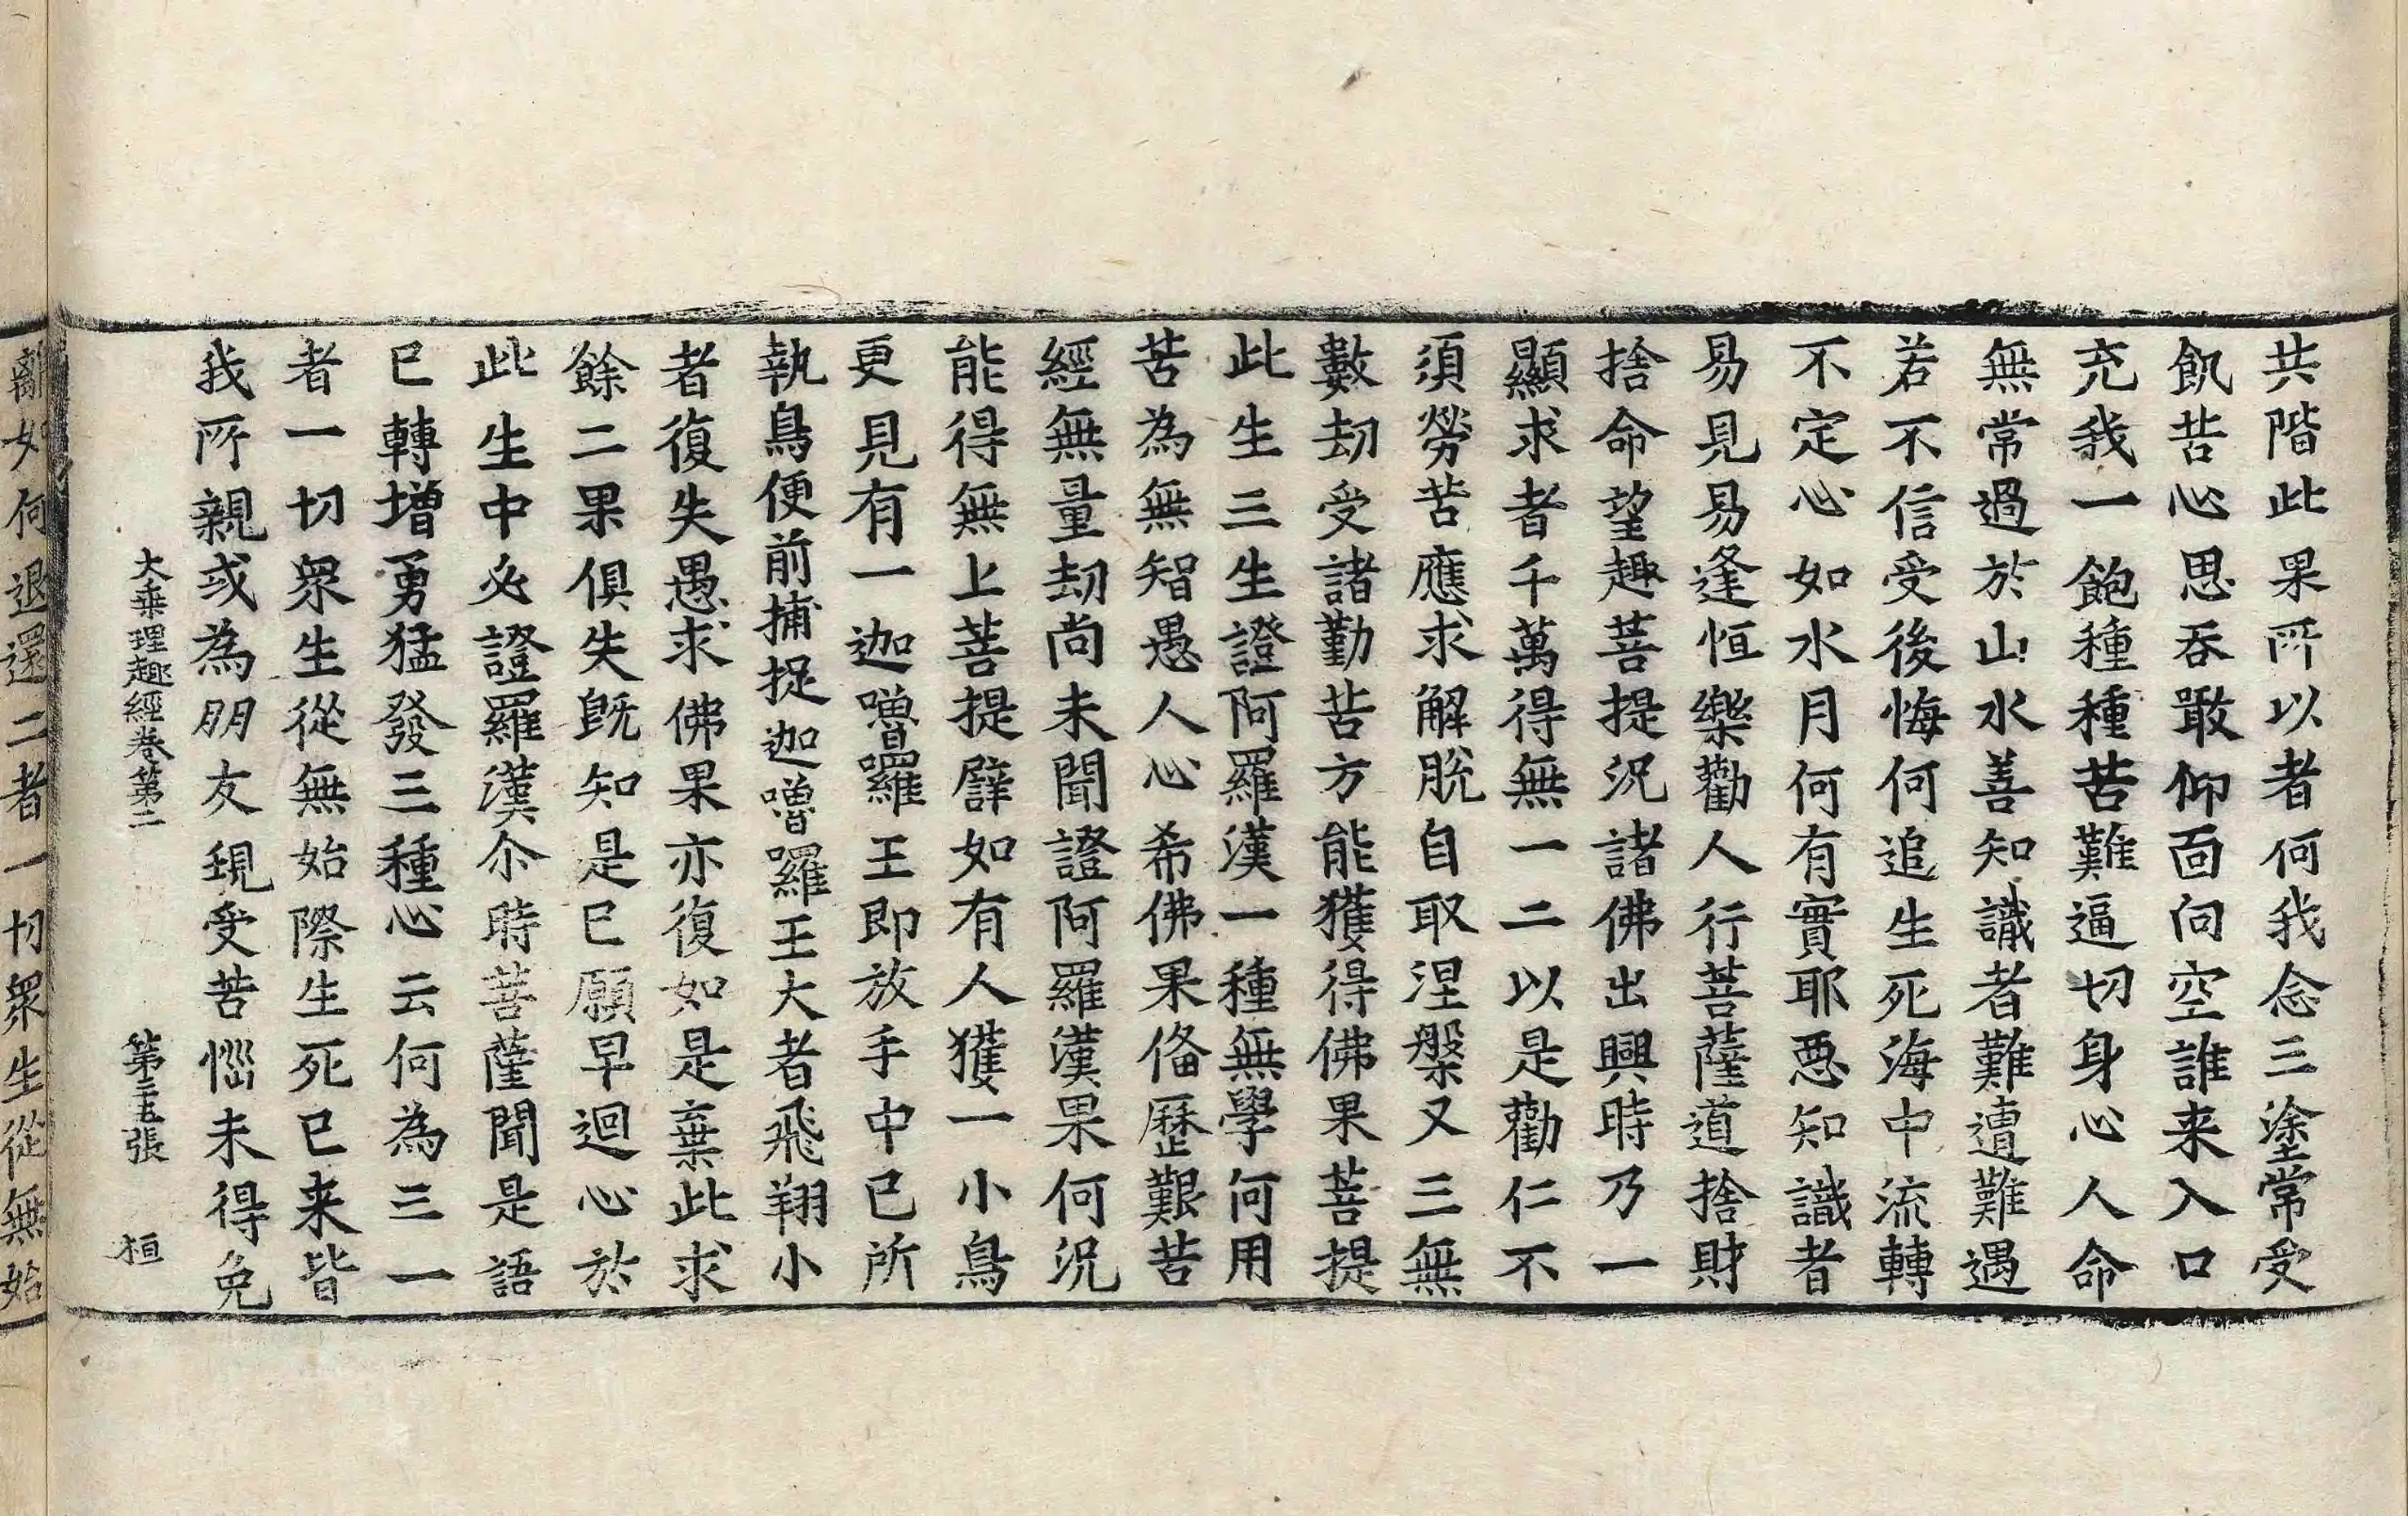 共階此果所以者何我念三塗常受
飢苦心思吞噉仰面向空誰来入口
充我一飽種種苦難逼切身心人命
無常過於山水水善知識者難遭難遇
若不信受後悔何追生死海中流轉
不定心如水月何有實耶惡知識者
易見易逢恒樂勸人行菩薩道捨財
捨命望趣菩提況諸佛出興時乃一
顯求者千萬得無一二以是勸仁不
須勞苦應求解脫自取涅槃又三無
數劫受諸勤苦方能獲得佛果菩提
此生三生證阿羅漢一種無學何用
苦為無智愚人心希佛果俻歷艱苦
經無量劫尚未聞證阿羅漢果何況
能得無上菩提譬如有人獲一小鳥
更見有一迦嚕羅王即放手中已所
執鳥便前捕捉迦嚕羅王大者飛翔小
者復失愚求佛果亦復如是棄此求
餘二果俱失既知是已願早迴心於
此生中必證羅漢尒時菩薩聞是語
已轉增勇猛發三種心云何為三一
者一切眾生從無始際生死已来皆
我所親或為朋友現受苦惱未得免
大乘理趣經卷第二 第二十五張 桓
離如何退還二者一切眾生從無始